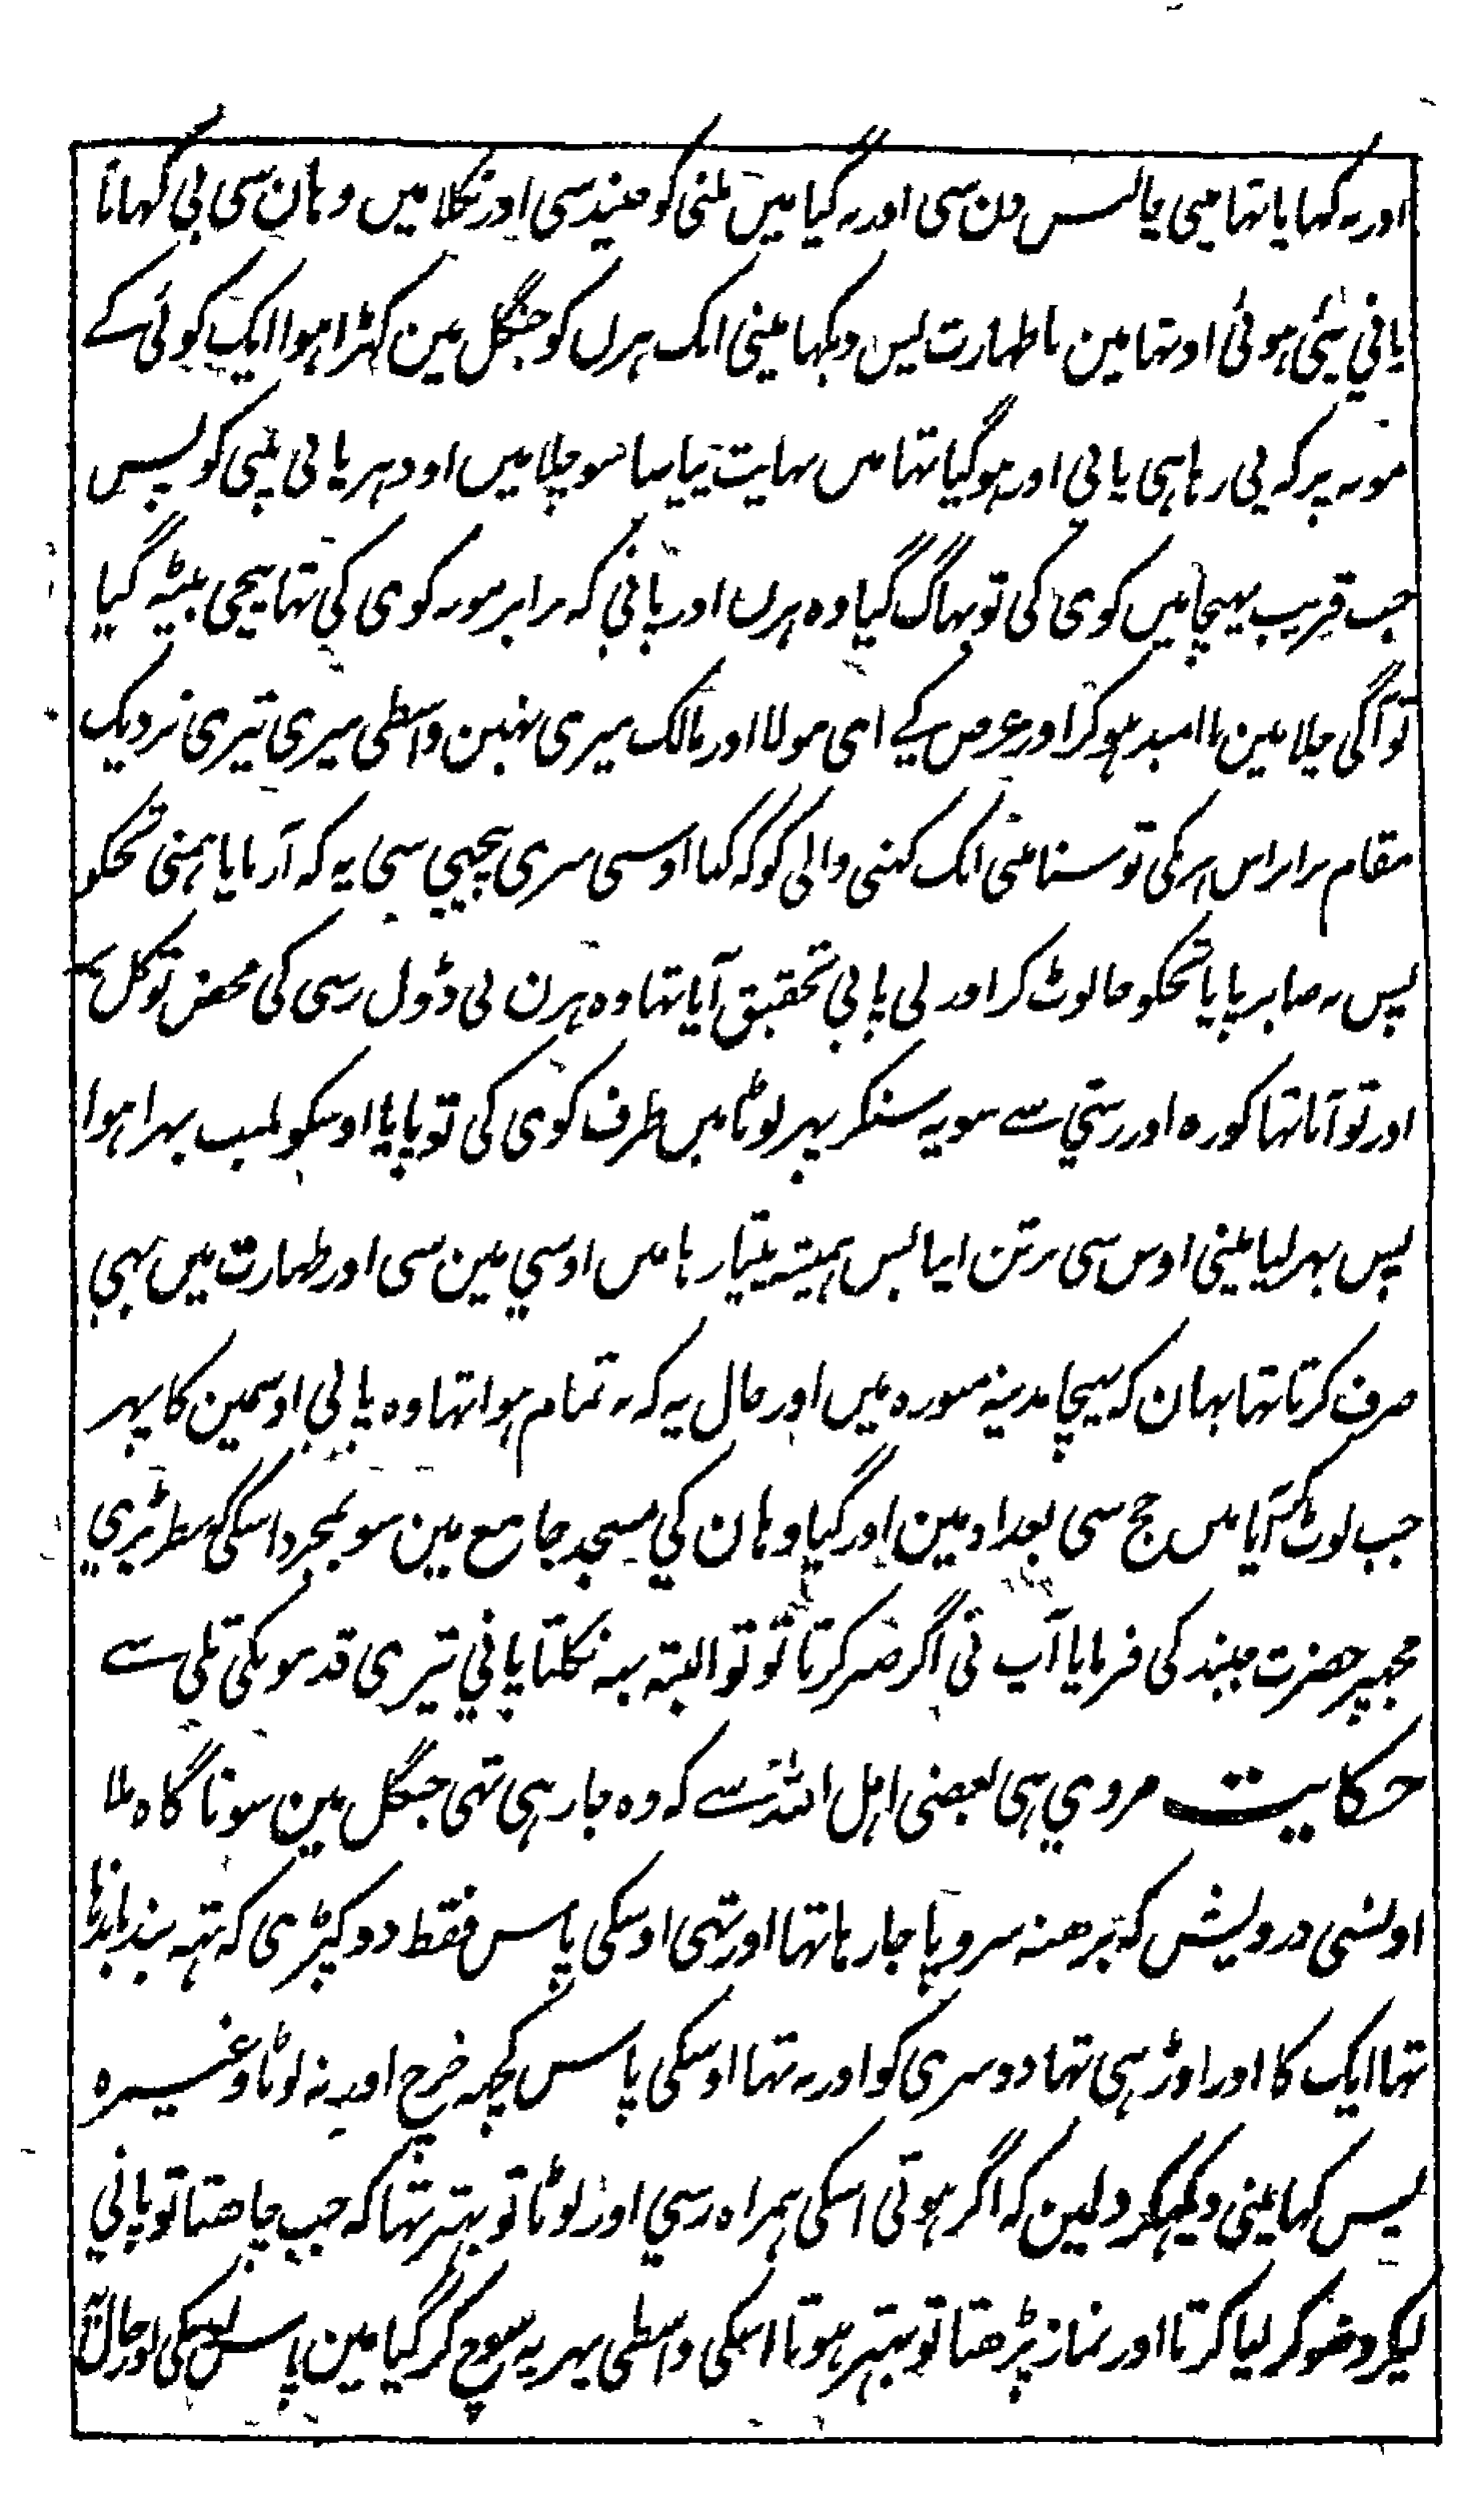 اور نہ کہایا تہا مینی چالیس دن سی اور نہ گیا میں ملنی کو جنید سی اور نکلا میں وہان سی بی کہانا
پانی پئی ہوئی اور تہا مین باطہارت پس دیکہا مینی ایک ہرن کو جنگل مین کہڑا ہوا ایک کوئی کے
مونہ پر کہ پی رہا ہی پانی اور ہو گیا تہا میں نہایت پیاسا سو چلا میں اودہر پانی پینی کو پس
جب قریب پہنچا میں کوی کی تو بہاگ گیا وہ ہرن اور پانی کہ برابر مونہ کوی کی تہا نیچی بیٹہ گیا
تو آگی چلا مین ناامید ہو کر اور عرض کے ای مولا اور مالک میری نہین واسطی میری تیری نزدیک
مقام برابر اس ہرن کی تو سنا مینی ایک کہنی والی کو کہ کہا اوسی میری پیچہی سی یہ کہ آزمایا ہمنی تجکو
پس نہ صابر پایا تجکو جا لوٹ کر اور لی پانی تحقیق آیا تہا وہ ہرن بی ڈول رسی کی محض توکل پر
اور تو آیا تہا کوزہ اور رسّی سے سو یہ سنکر پہر لوٹا میں طرف کوی کی تو پایا اوسکو لبلب بہرا ہوا
پس بہر لیا مینی اوس سی برتن اپنا پس ہمیشہ پیتا رہا میں اوسی مین سی اور طہارت میں بہی
صرف کرتا تہا یہان کہ پہنچا مدینہ منورہ میں اور حال یہ کہ نہ تمام ہوا تہا وہ پانی اوسمین کا پہر
جب لوٹ کر آیا میں حج سی بغداد مین اور گیا وہان کی مسجد جامع مین سو بمجرد اسکی کہ نظر پڑی
مجہپر حضرت جنید کی فرمایا آپ نی اگر صبر کرتا تو تو البتہ بہ نکلتا پانی تیری قدمونکی تلی سے
حکایت مروی ہی بعضی اہل اللہ سے کہ وہ جا رہی تہی جنگل مین سو ناگاہ ملا
اونسی درویش کہ برھنہ سر و پا جا رہا تہا اور تہی اوسکی پاس فقط دو کپڑی کہ تہہ بند باندہا
تہا ایک کا اور اوڑہی تہا دوسری کو اور نہ تہا اوسکی پاس کچہہ خرچ اور نہ لوٹا وغیرہ
پس کہا مینی دیکہکر دلمین کہ اگر ہوتی اسکی ہمراہ رسی اور لوٹا تو بہتر تہا کہ جب چاھتا تو پانی
لیکر وضو کر لیا کرتا اور نماز پڑھتا تو بہتر ہوتا اسکی واسطی پہر یہ سوچ کر گیا مین پاس اسکی اور حال